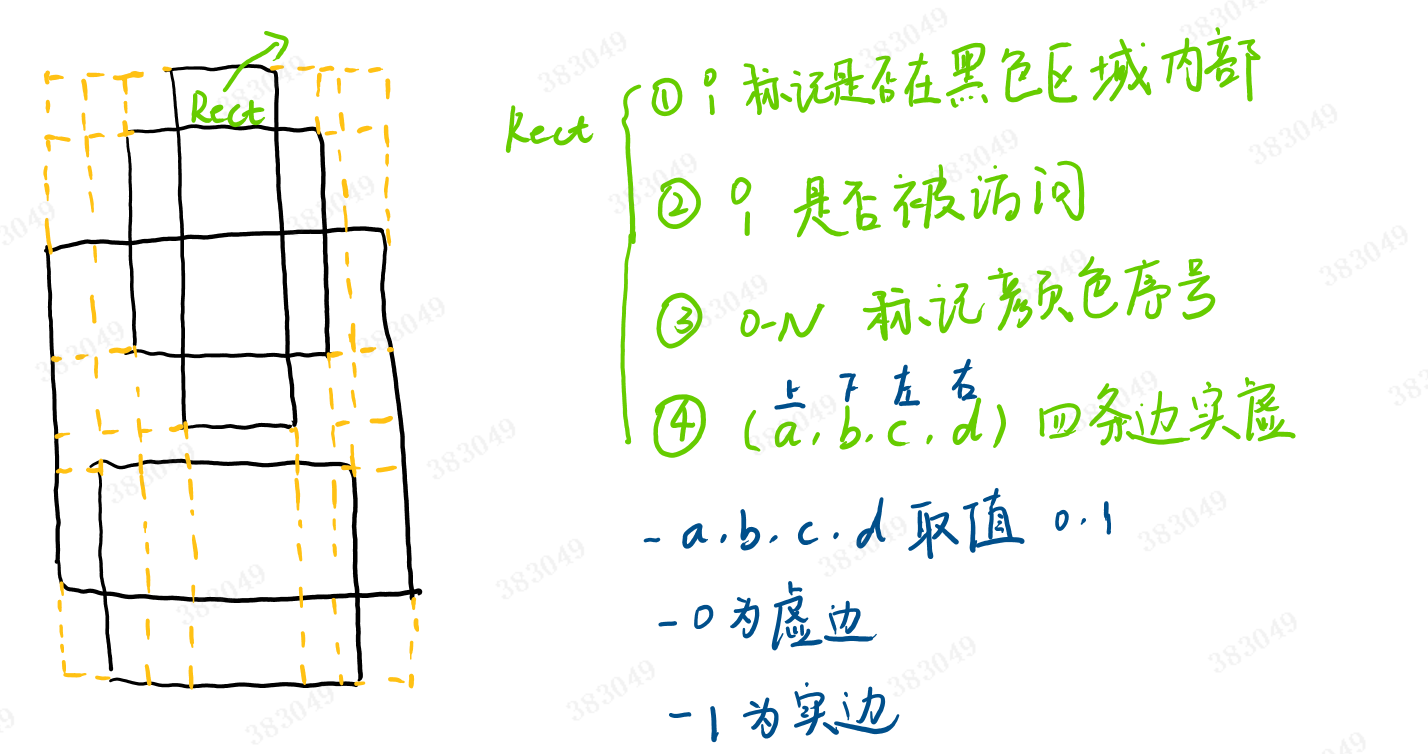 Rect
Rect
① 0 1 标记是否在黑色区域内部
② 0 1 是否被访问
③ 0-N 标记颜色序号
上 下 左 右
④ (a, b, c, d) 四条边实虚
- a, b, c, d 取值 0, 1
- 0 为虚边
- 1 为实边
383049